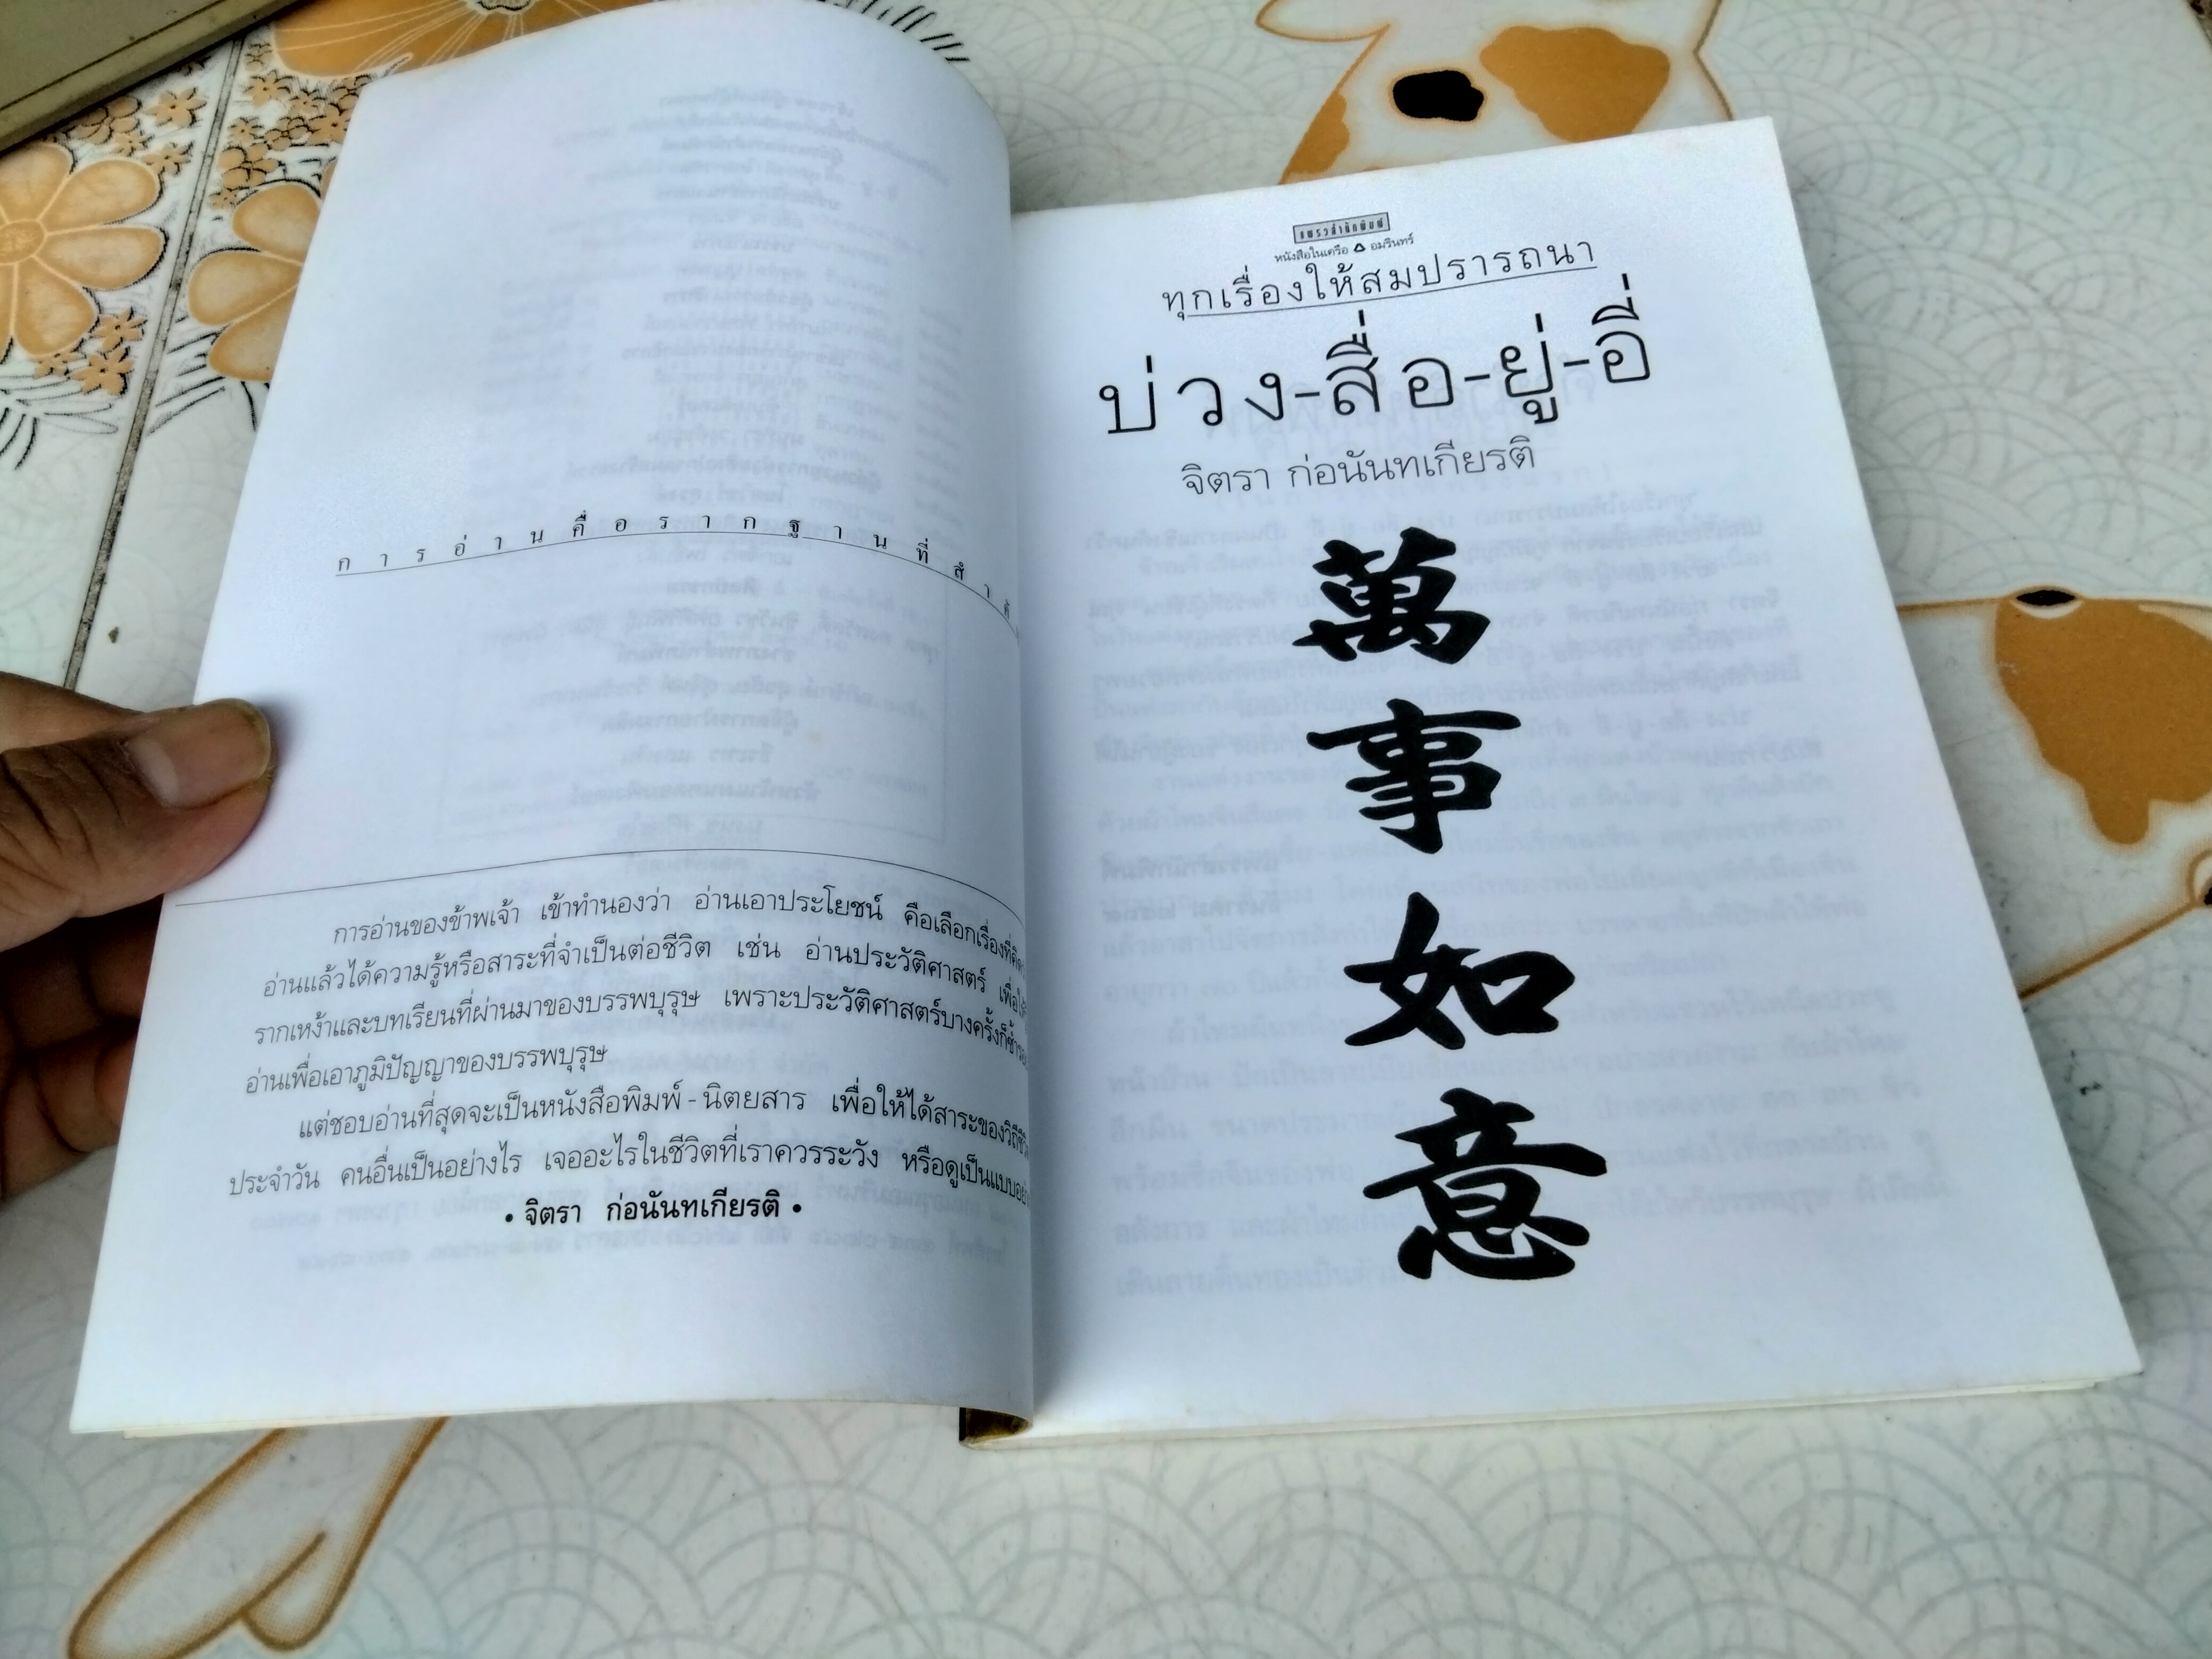 การอ่านคือรากฐานที่สำ
การอ่านของข้าพเจ้า เข้าทำนองว่า อ่านเอาประโยชน์ คือเลือกเรื่องที่
อ่านแล้วได้ความรู้หรือสาระที่จำเป็นต่อชีวิต เช่น อ่านประวัติศาสตร์
รากเหง้าและบทเรียนที่ผ่านมาของบรรพบุรุษ เพราะประวัติศาสตร์บางครั้งก็ซ้ำ
อ่านเพื่อเอาภูมิปัญญาของบรรพบุรุษ
แต่ชอบอ่านที่สุดจะเป็นหนังสือพิมพ์-นิตยสาร เพื่อให้ได้สาระของวิถี
ประจำวัน คนอื่นเป็นอย่างไร เจออะไรในชีวิตที่เราควรระวัง หรือดูเป็นแบบ
• จิตรา ก่อนันทเกียรติ •
แพรวสำนักพิมพ์
หนังสือในเครือ อมรินทร์
ทุกเรื่องให้สมปรารถนา
บ่วง-สื่อ-ยู่-อี่
จิตรา ก่อนันทเกียรติ
萬
事
如
意